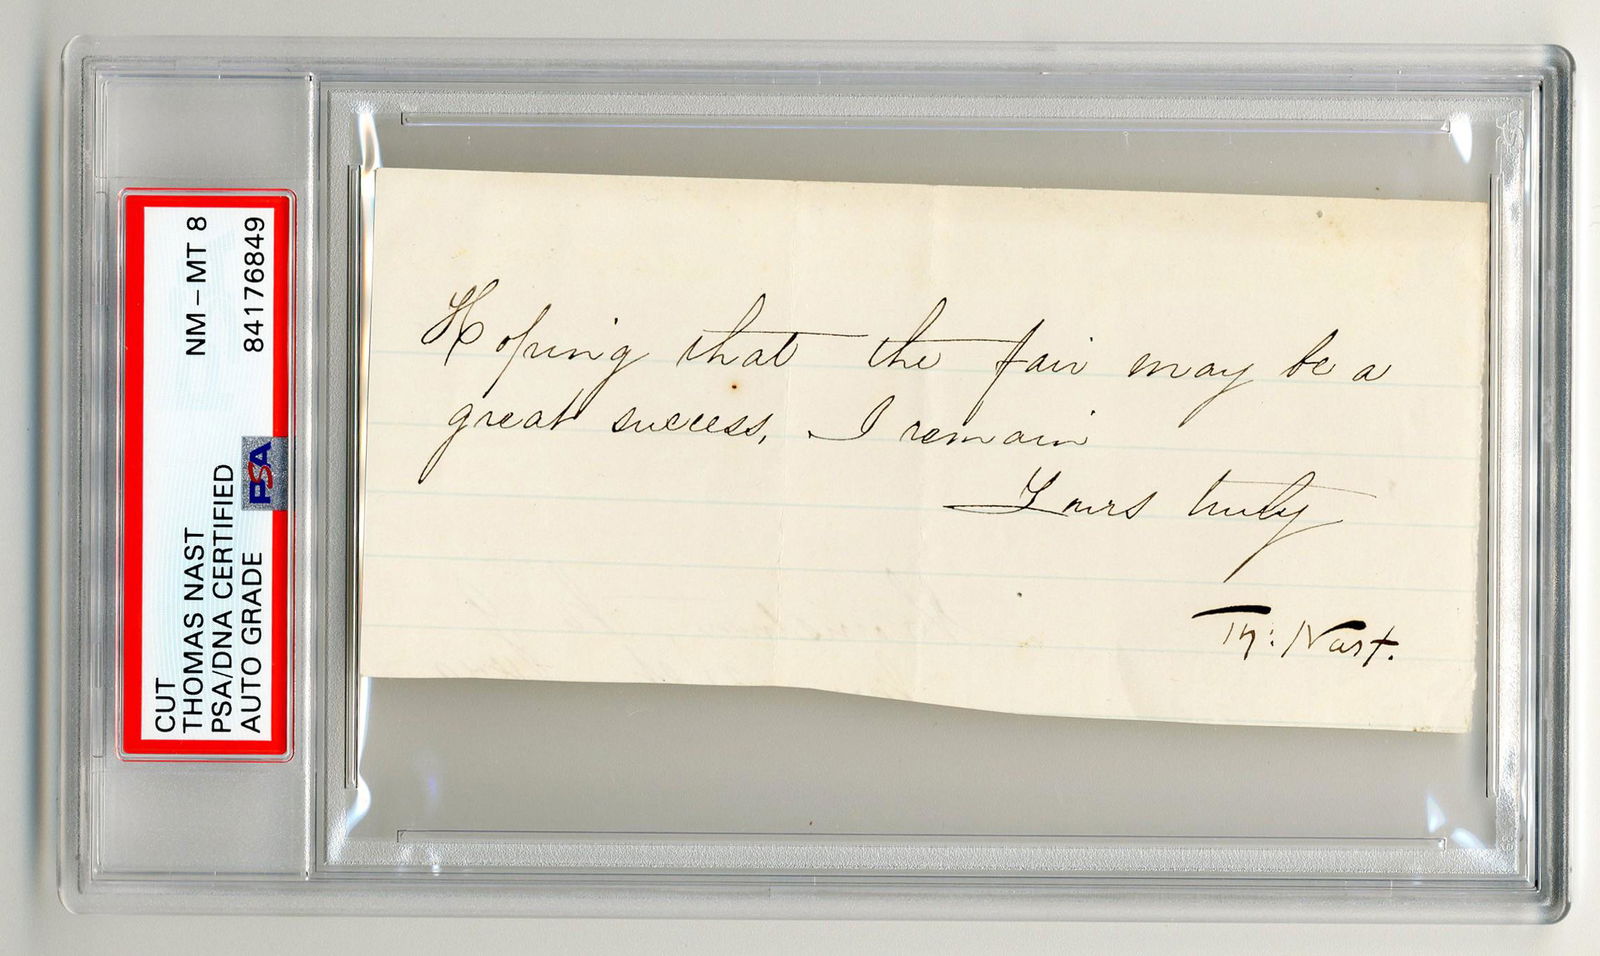 CUT
THOMAS NAST
PSA/DNA CERTIFIED
AUTO GRADE
NM-MT 8
84176849
PSA
Hoping that the fair may be a
great success, I remain
Yours truly
Th: Nast.